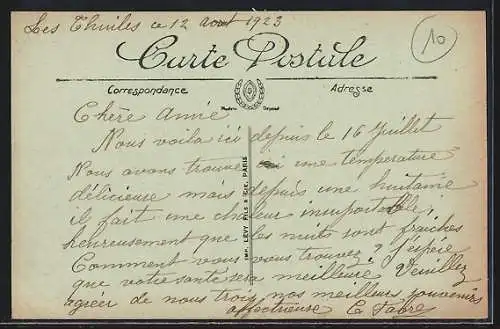 Les Thuiles ce 12 Aout 1923
10
Carte Postale
Correspondance
Adresse
Modèle Déposé
Chère Amie
Nous voila ici depuis le 16 Juillet
Nous avons trouvé ici une temperature
délicieuse mais depuis une huitaine
il fait une chaleur insuportable,
heureusement que les nuits sont fraiches
Comment vous vous trouvez ? j'éspére
que votre santé sera meilleure. Veuillez
agréer de nous trois nos meilleurs souvenirs
affectrieuse C Fabre
IMP. LÉVY FILS & CIE, PARIS